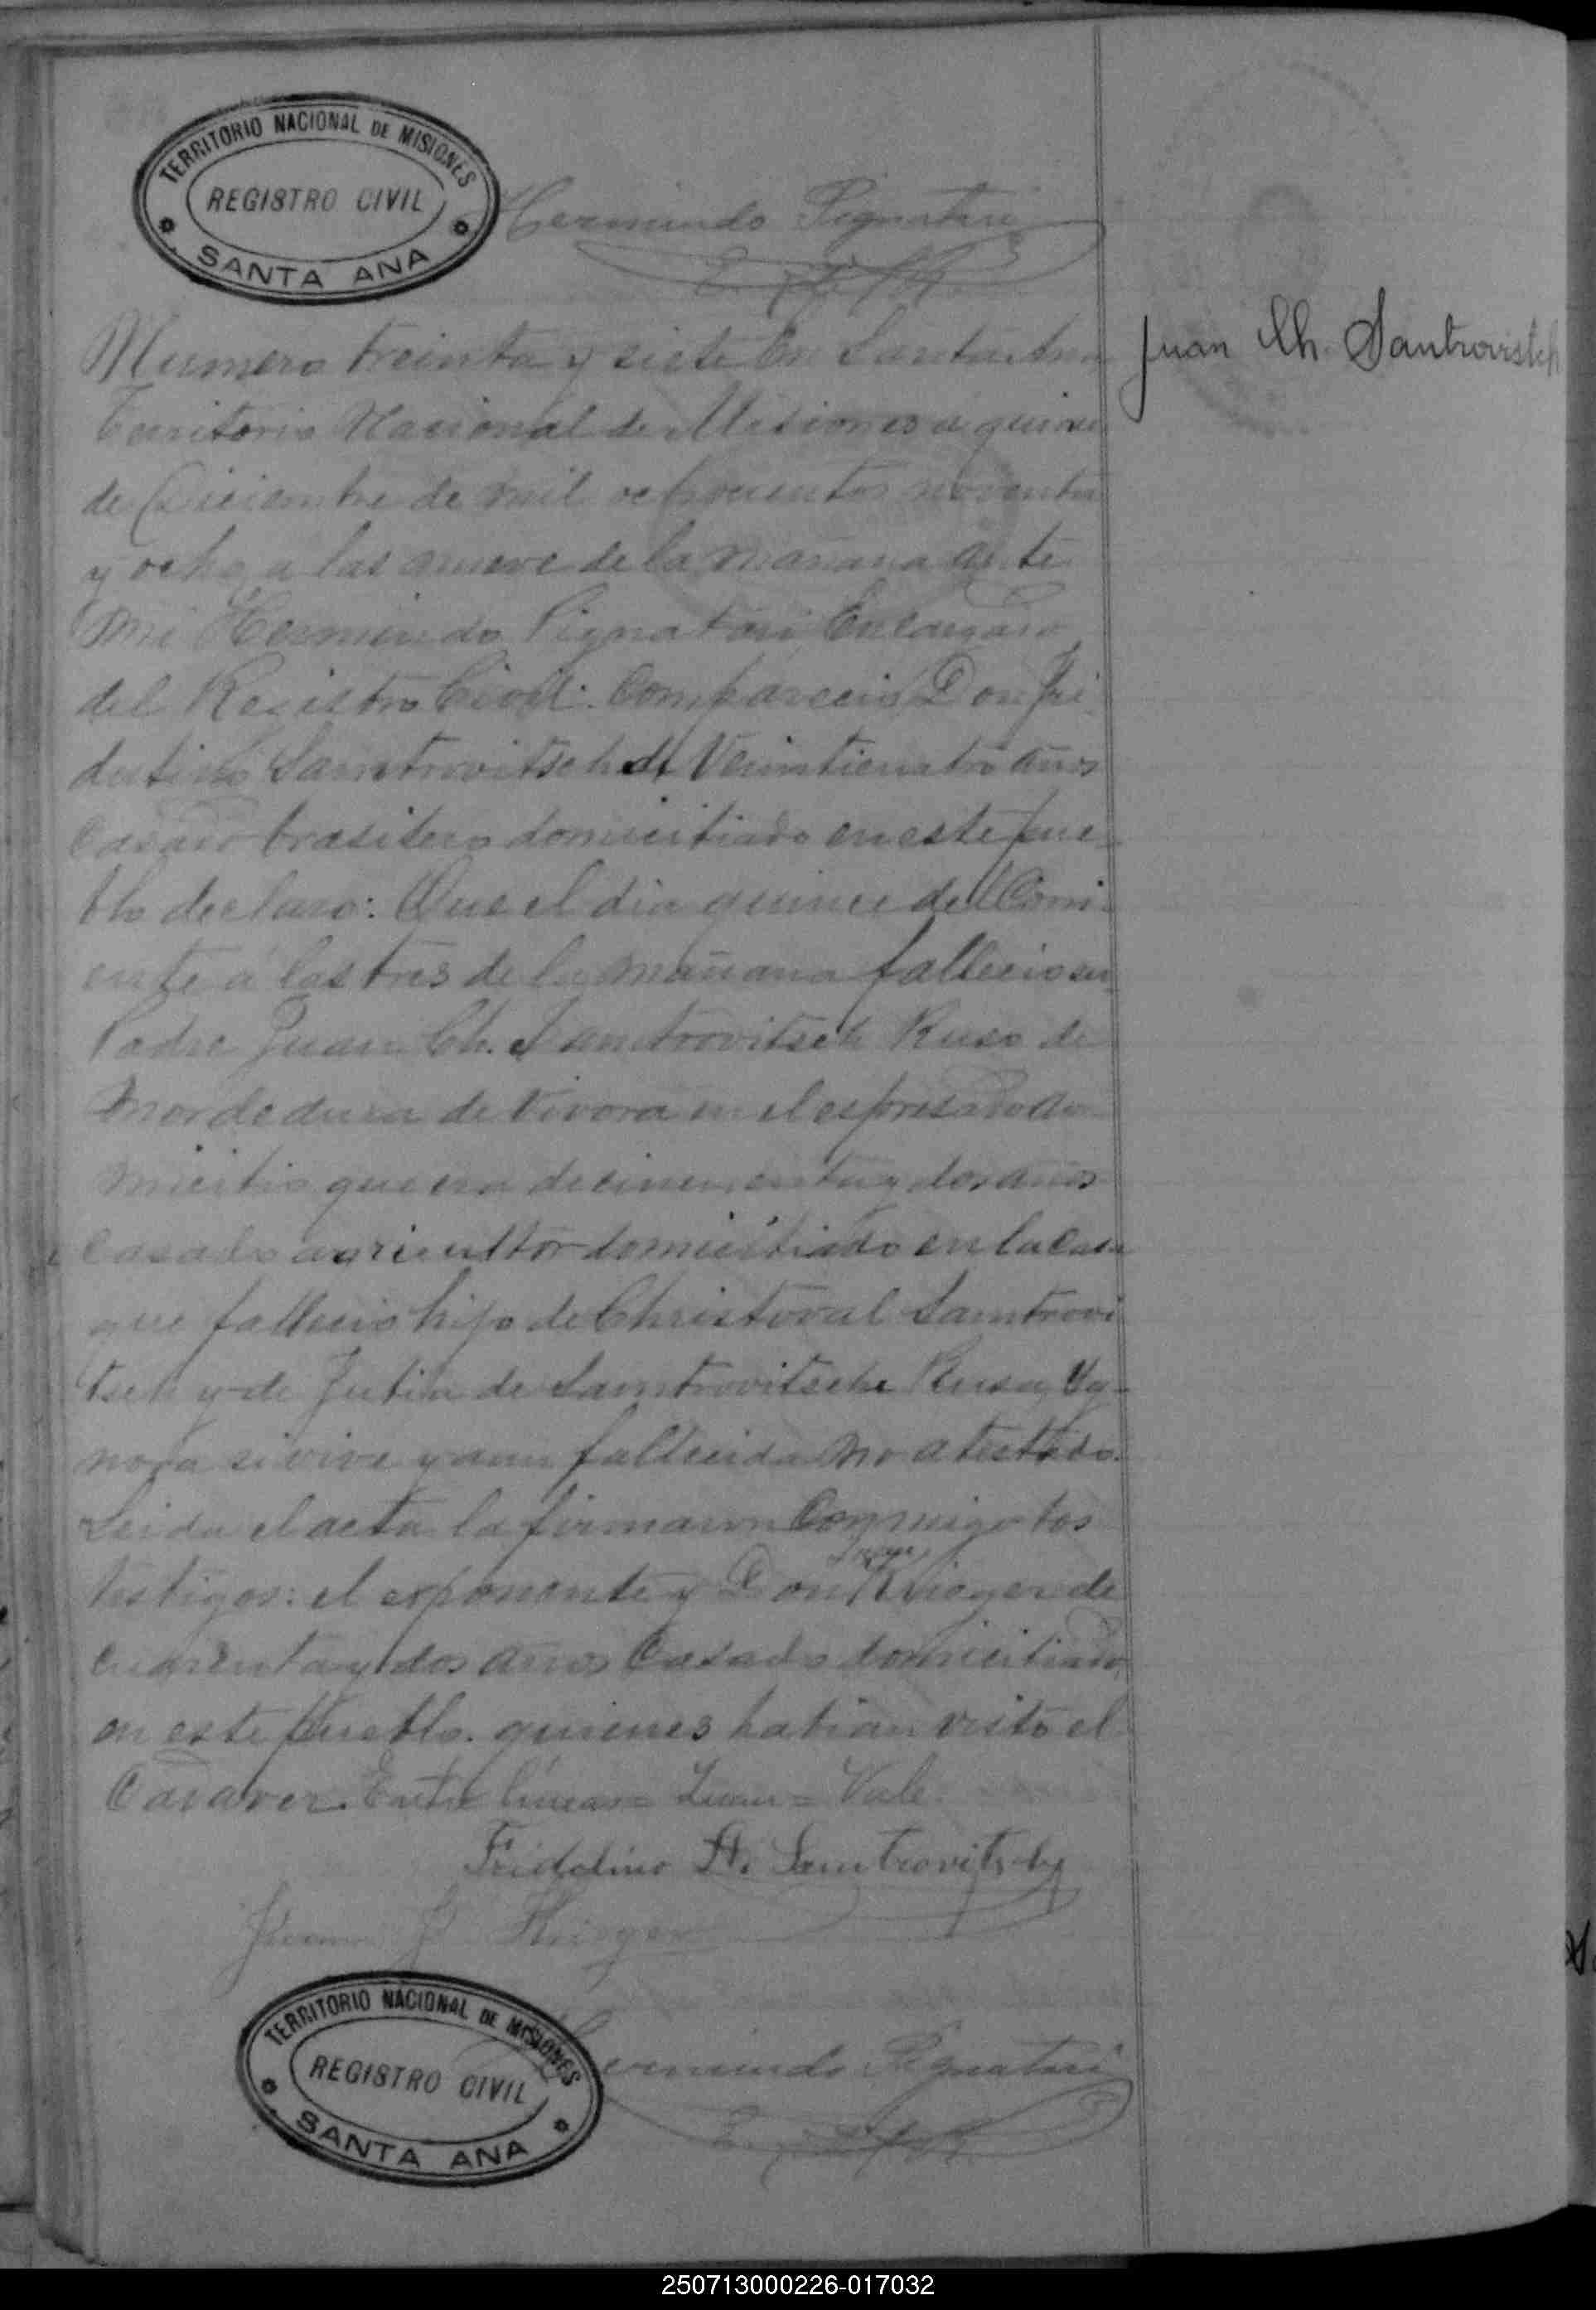 TERRITORIO NACIONAL DE MISIONES
REGISTRO CIVIL
SANTA ANA
Hermindo Pignatari
Juan Ch. Santrovistch
Numero treinta y siete En Santa Ana
Territorio Nacional de Misiones a quince
de Diciembre de mil ochocientos noventa
y ocho, a las nueve de la mañana ante
mi Hermindo Pignatari, Encargado
del Registro Civil: Comparecio Don Fri
dolino Samtrovitsch de Veinticuatro años
casado brasilero domiciliado en este pue-
blo declaro: Que el dia quince del Corri-
ente á las tres de la mañana fallecio su
Padre Juan Ch. Samtrovitsch Ruso de
mordedura de Vivora en el espresado do
micilio que era de cincuenta y dos años
casado agricultor domiciliado en la casa
que fallecio hijo de Christoval Samtrovi
tsch y de Julia de Samtrovitsche Rusa, Yg-
nora si vive y aun fallecida no a testado.
Leida el acta la firmaron Conmigo los
testigos: el exponente y Don Juan Krieger de
cuarenta y dos años Casado domiciliado
en este Pueblo. quienes habian visto el
Cadaver. Entre lineas = Juan = Vale.
Fridolino Samtrovitsch
Krieger
TERRITORIO NACIONAL DE MISIONES
REGISTRO CIVIL
SANTA ANA
Hermindo Pignatari
250713000226-017032